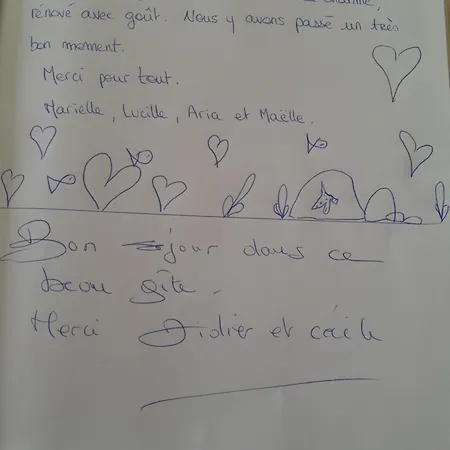 charme,
rénové avec goût. Nous y avons passé un très
bon moment.
Merci pour tout.
Marielle, Lucille, Aria et Maëlle.
Bon séjour dans ce
beau gîte.
Merci Didier et cécile